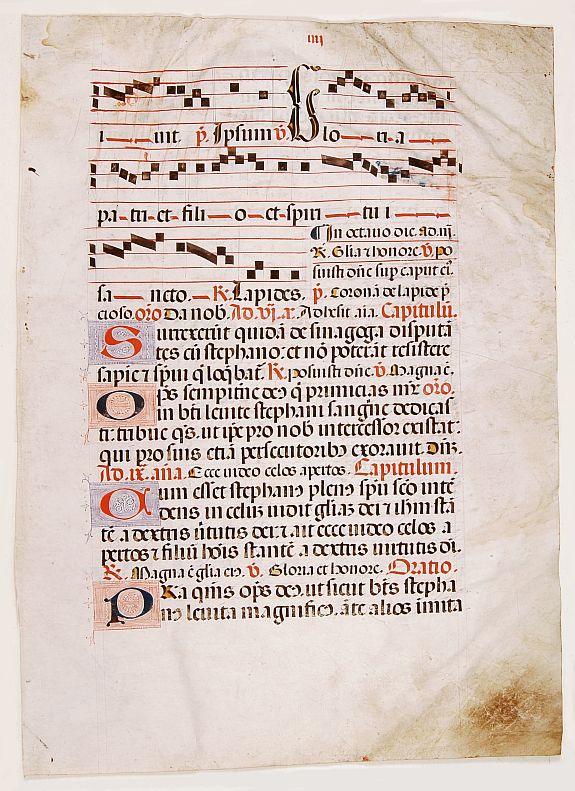 iiij
i — uit. p. Ipsum v. Glo — ri-a —
pa-tri-et-fili — o-et-spiri — tui —
In octauo die. ad. iij.
R. Glia & honore. v. po
suisti dne sup caput ei.
sa — ncto. — R. Lapides. p. Coronā de lapide p
cioso. oro Da nob. Ad. vj. a. Adhesit. aīa. Capitulū.
Surrexerūt quidā de sinagoga disputā
tes cū stephano: et nō poterāt resistere
sapīe & spūi q̄ loq̄bat. R. posuisti dne. v. Magna ē.
Ops sempitne de9 q̄ primicias mr̄ oro.
in bti leuite stephani sangne dedicas
ti: tribue qs. ut ipe pro nob intercessor existat:
qui pro suis etiā persecutoribo exorauit. Dn̄s.
Ad. ix. an̄a. Ecce uideo celos apertos. Capitulum.
Cum esset stephan9 plen9 spū sc̄o intē
dens in celū: uidit gliā dei & ihm stā
tē a dextris uirtutis dei: & ait ecce uideo celos a
pertos & filiū hōis stantē a dextris uirtutis di.
R. Magna ē glia ei9. v. Gloria et honore. Oratio.
PRa qms ops de9. ut sicut bt̄s stepha
n9 leuita magnific9. āte alios imita